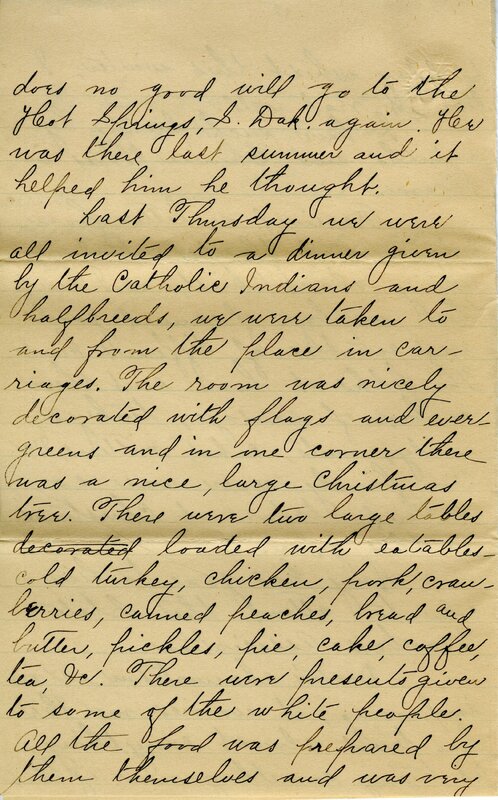 does no good will go to the
Hot Springs, S. Dak. again. He
was there last summer and it
helped him he thought.
Last Thursday we were
all invited to a dinner given
by the Catholic Indians and
halfbreeds, we were taken to
and from the place in car-
riages. The room was nicely
decorated with flags and ever-
greens and in one corner there
was a nice, large Christmas
tree. There were two large tables
decorated loaded with eatables-
cold turkey, chicken, pork, cran-
berries, canned peaches, bread and
butter, pickles, pie, cake, coffee,
tea, &c. There were presents given
to some of the white people.
All the food was prepared by
them themselves and was very